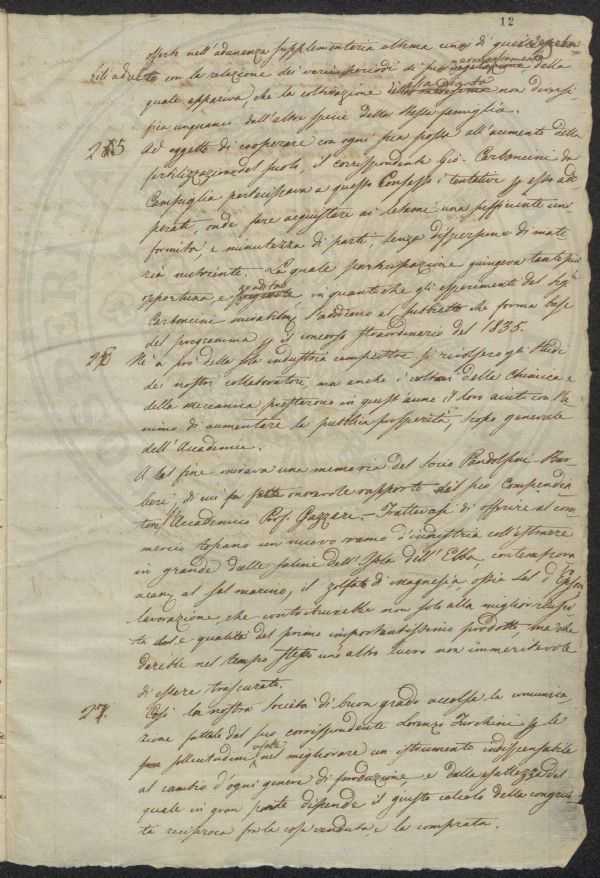 12
offerto nell'adunanza supplementaria ultima una di queste
con la relazione dei varii periodi di sua vegetazione, dalla
quale appariva, che la coltivazione non diversi
fica punto dall'altre specie della stessa famiglia.
25 Ad oggetto di cooperare con ogni sua possa all'aumento della
fertilizzazione del suolo, il corrispondente Gio. Carboncini da
Campiglia partecipava a questo Consesso i tentativi p esso ad
operati, onde fare acquistare ai letami una sufficiente un
formità, e minutezza di parti, senza dispersione di mate
ria nutriente. La quale partecipazione giungeva tanto più
opportuna e gradita, in quanto che gli esperimenti del Sig.
Carboncini si addicono al subbietto che forma base
del programma p il concorso straordinario del 1835.
26 Nè a prò della sola industria campestre si rivolsero gli studi
dei nostri collaboratori, ma anche i cultori della Chimica e
della meccanica prestarono in quest'anno il loro aiuto con l'a
nimo di aumentare la pubblica prosperità, scopo generale
dell'Accademia.
A tal fine mirava una memoria del Socio Pandolfini Bar
beri, di cui fu fatto onorevole rapporto dal suo Compendia
tore l'Accademico Prof. Gazzeri. Trattavasi di offrire al com
mercio toscano un nuovo ramo d'industria coll'estrarre
in grande dalle saline dell'Isola dell'Elba, contempora
neam. al sal marino, il solfato di magnesia, ossia Sal d'Epson,
lavorazione, che contribuirebbe non solo alla miglior riusci
ta e qualità del primo importantissimo prodotto, ma che
darebbe nel tempo stesso un altro lucro non immeritevole
di essere trascurato.
27. Così la nostra Società di buon grado accolse la comunica
zione fattale dal suo corrispondente Lorenzo Turchini p le
sollecitudini usate nel migliorare un istrumento indispensabile
al cambio d'ogni genere di produzione, e dalla esattezza del
quale in gran parte dipende il giusto calcolo della congrui
tà reciproca fra la cosa venduta, e la comprata.